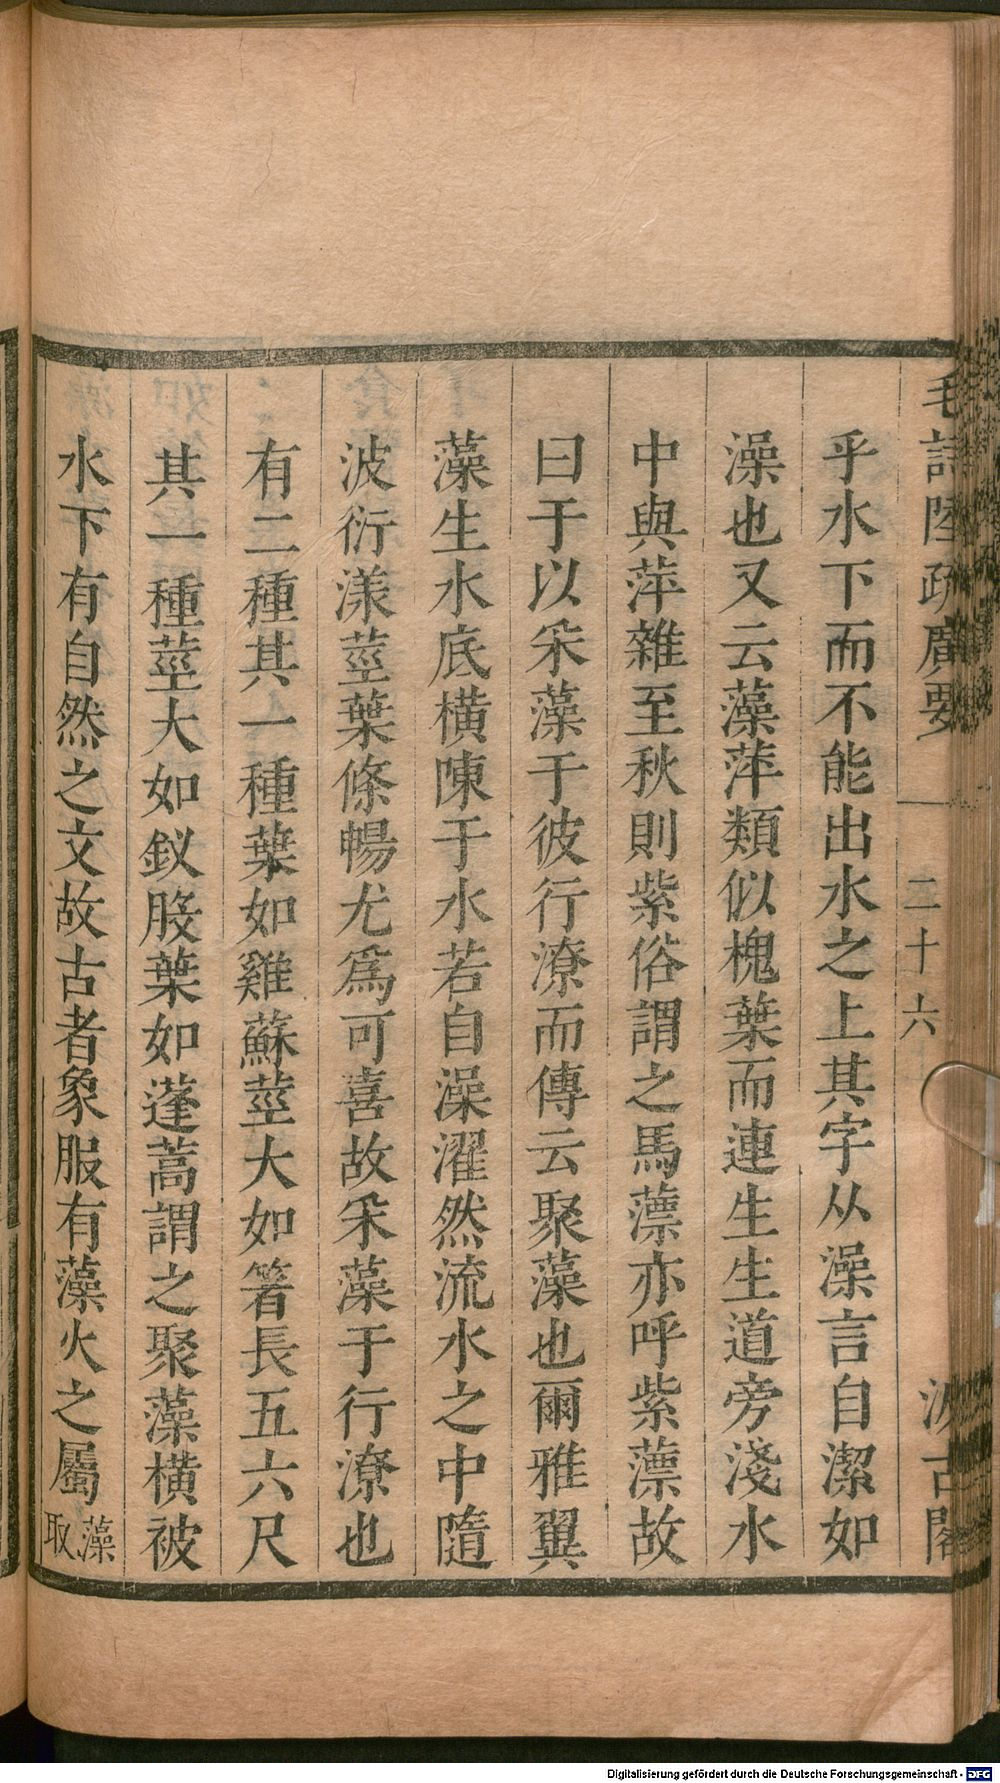 毛詩陸疏廣要 二十六 汲古閣
乎水下而不能出水之上其字从澡言自潔如
澡也又云藻萍類似槐葉而連生生道旁淺水
中與萍雜至秋則紫俗謂之馬薸亦呼紫薸故
曰于以采藻于彼行潦而傳云聚藻也爾雅翼
藻生水底橫陳于水若自澡濯然流水之中隨
波衍漾莖葉條暢尤爲可喜故采藻于行潦也
有二種其一種葉如雞蘇莖大如箸長五六尺
其一種莖大如釵股葉如蓬蒿謂之聚藻橫被
水下有自然之文故古者象服有藻火之屬藻取
Digitalisierung gefördert durch die Deutsche Forschungsgemeinschaft - DFG